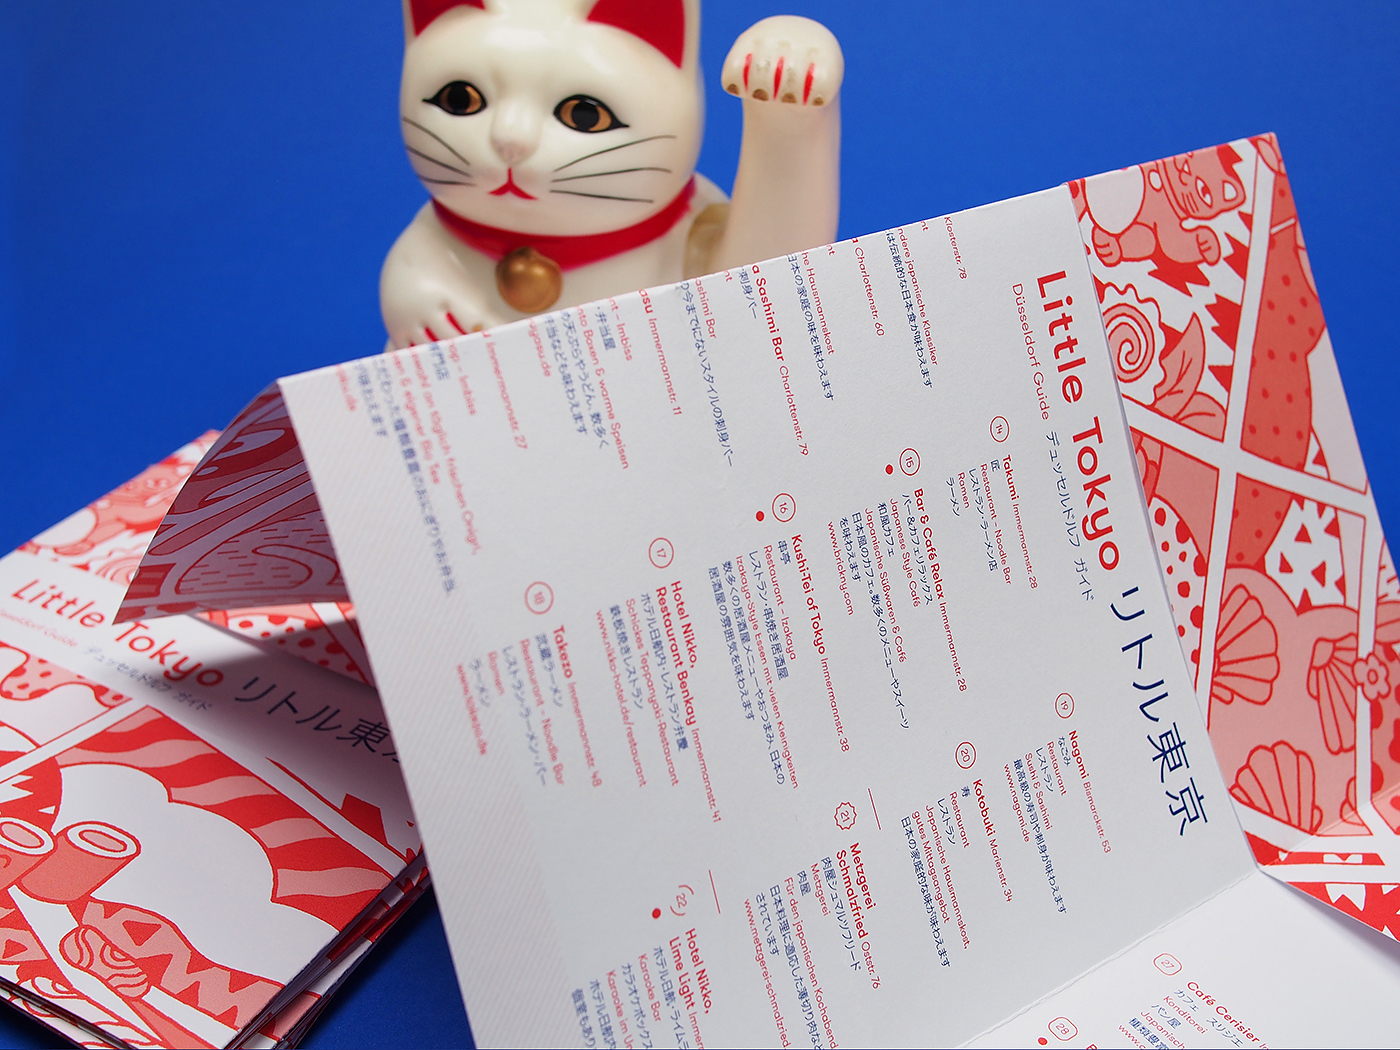 Little Tokyo リトル東京
Düsseldorf Guide デュッセルドルフ ガイド
Klosterstr. 78
ndere japanische Klassiker
は伝統的な日本食が味わえます
Charlottenstr. 60
he Hausmannskost
日本の家庭の味を味わえます
a Sashimi Bar Charlottenstr. 79
刺身バー
ashimi Bar
の今までにないスタイルの刺身バー
asu Immermannstr. 11
nt - Imbiss
弁当屋
nto Boxen & warme Speisen
の天ぷらやうどん、数多く
弁当なども味わえます
Immermannstr. 27
op - Imbiss
専門店
täglich frischen Onigiri,
& eigener Big Tee
こだわった種類豊富のおにぎりやお弁当
が味わえます
14
Takumi Immermannstr. 28
匠
Restaurant - Noodle Bar
レストラン・ラーメン店
Ramen
ラーメン
15
Bar & Café Relax Immermannstr. 28
バー&カフェ リラックス
Japanese Style Café
和風カフェ
Japanische Süßwaren & Café
日本屋のカフェ。数多くのメニューやスイーツ
を味わえます
16
Kushi-Tei of Tokyo Immermannstr. 38
串亭
Restaurant - Izakaya
レストラン・串焼き居酒屋
Izakaya-Style Essen mit vielen Kleinigkeiten
数多くの居酒屋メニューやおつまみ、日本の
居酒屋の雰囲気を味わえます
17
Hotel Nikko,
Restaurant Benkay Immermannstr. 41
ホテル日航内・レストラン弁慶
Schickes Teppanyaki-Restaurant
鉄板焼きレストラン
www.nikko-hotel.de/restaurant
18
Takezo Immermannstr. 48
武蔵ラーメン
Restaurant - Noodle Bar
レストラン・ラーメン・バー
Ramen
ラーメン
19
Nagomi Bismarckstr. 53
なごみ
Restaurant
レストラン
Sushi & Sashimi
最高級の寿司や刺身が味わえます
www.nagomi.de
20
Kotobuki Marienstr. 34
寿
Restaurant
レストラン
Japanische Hausmannskost,
gutes Mittagsangebot
日本の家庭的な味が味わえます
21
Metzgerei
Schmalzfried Oststr. 76
肉屋シュマルツフリード
Metzgerei
肉屋
Für den japanischen Kochabend
日本料理に適応した薄切り肉など
されています
www.metzgerei-schmalzfried.
22
Hotel Nikko,
Lime Light Immerm
ホテル日航・ライム
Karaoke Bar
カラオケボックス
Karaoke im Un
ホテル日航内
個室もあり
27
Café Cerisier
カフェ スリジエ
Konditorei
パン屋
Japanisch
種類豊富
28
Little Tokyo リトル東京
Düsseldorf Guide デュッセルドルフ ガイド